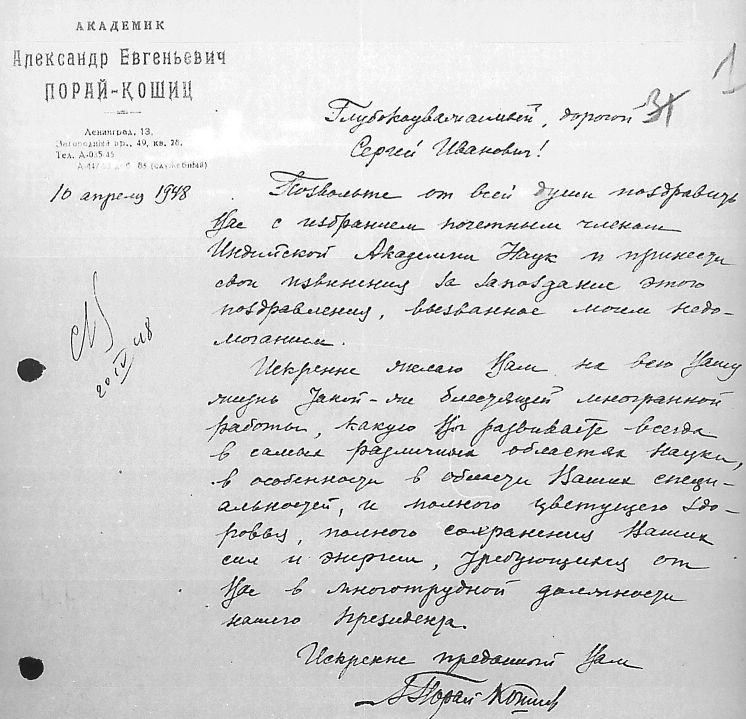 АКАДЕМИК
Александр Евгеньевич
ПОРАЙ-КОШИЦ
Ленинград, 13,
Загородный пр., 49, кв. 28.
Тел. А-035-45
(служебный)
10 апреля 1948
1
Глубокоуважаемый, дорогой
Сергей Иванович!
Позвольте от всей души поздравить
Вас с избранием почетным членом
Индийской Академии Наук и принести
свои извинения за запоздание этого
поздравления, вызванное моим недо-
моганием.
Искренне желаю Вам на всю Вашу
жизнь такой-же блестящей многогранной
работы, какую Вы развиваете всегда
в самых различных областях науки,
в особенности в области Ваших специ-
альностей, и полного цветущего здо-
ровья, полного сохранения Ваших
сил и энергии, требующихся от
Вас в многотрудной должности
нашего президента.
Искренне преданный Вам
А Порай-Кошиц
20 IV 48